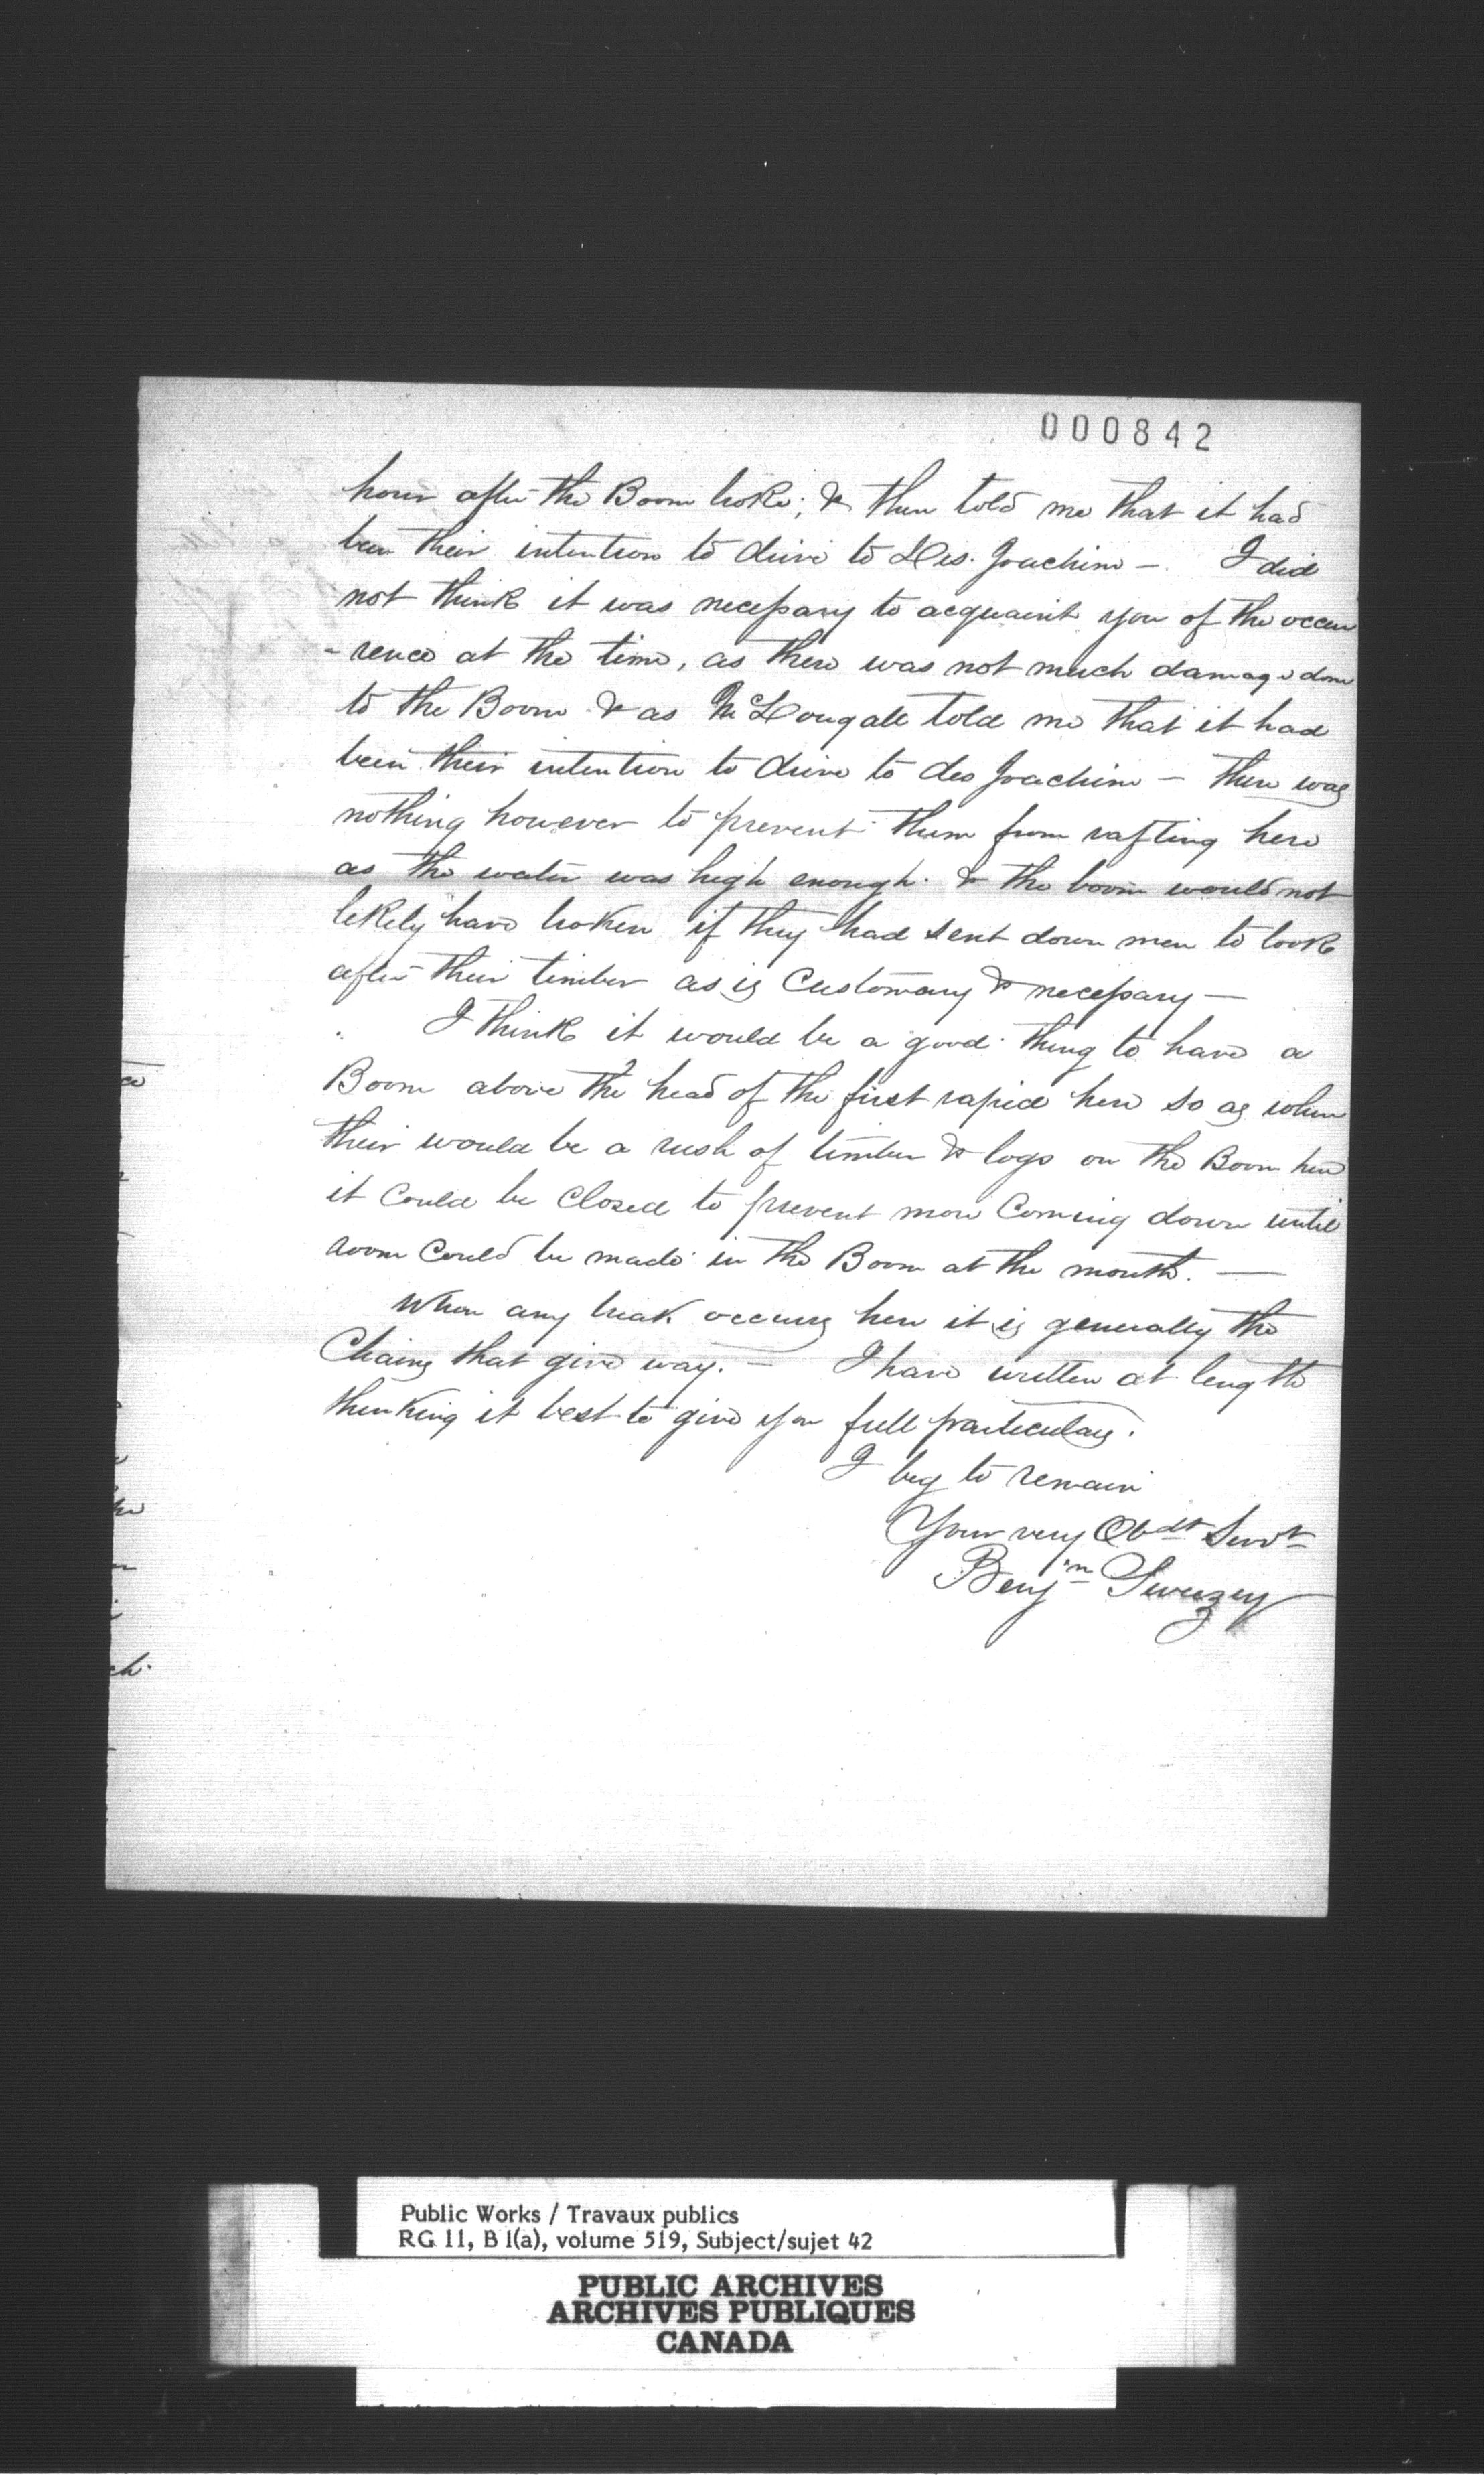 000842
hour after the Boom broke; & then told me that it had
been their intention to drive to Des. Joachim —. I did
not think it was necessary to acquaint you of the occur
- rence at the time, as there was not much damage done
to the Boom & as McDougall told me that it had
been their intention to drive to des Joachim — there was
nothing however to prevent them from rafting here
as the water was high enough. & the boom would not
likely have broken if they had sent down men to look
after their timber as is Customary & necessary —
I think it would be a good thing to have a
Boom above the head of the first rapid here so as when
their would be a rush of timber & logs on the Boom here
it Could be Closed to prevent more Coming down until
room Could be made in the Boom at the mouth. —
When any break occurs here it is generally the
Chains that give way. — I have written at length
thinking it best to give you full particulars.
I beg to remain
Your very Obdt Servt
Benjn Sweezey
Public Works / Travaux publics
RG 11, B 1(a), volume 519, Subject/sujet 42
PUBLIC ARCHIVES
ARCHIVES PUBLIQUES
CANADA